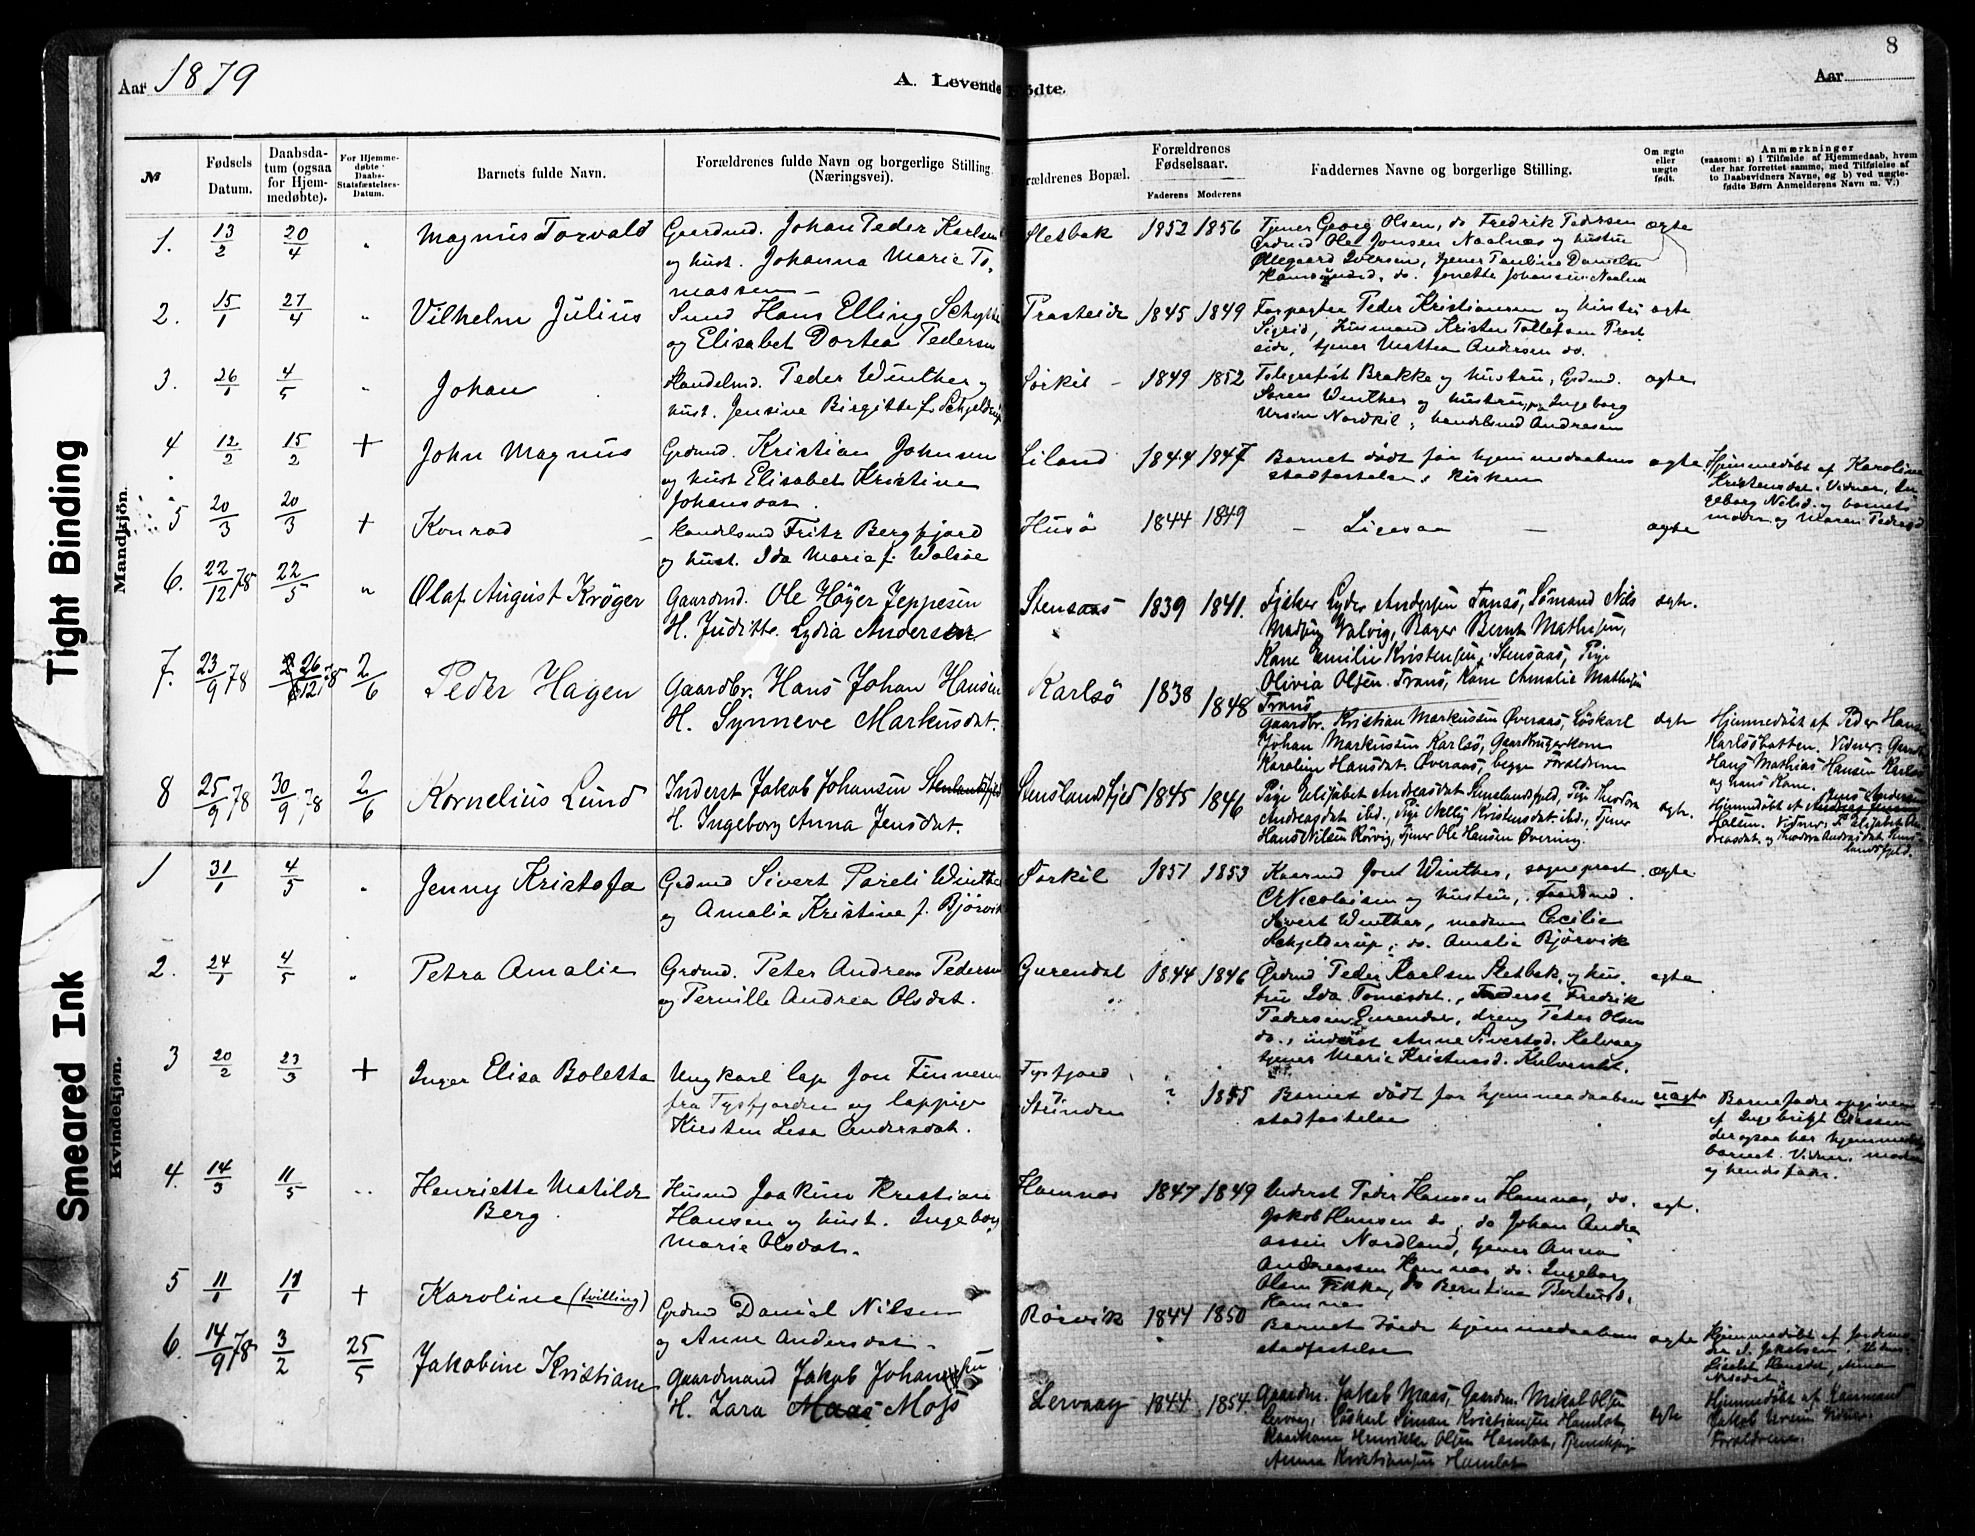 8
Aar 1879
A. Levende Fødte.
Aar
№
Fødsels Datum.
Daabsda-
tum (ogsaa
for Hjem-
medøbte).
For Hjemme-
døbte
Daabs-
Stadfæstelses-
Datum.
Barnets fulde Navn.
Forældrenes fulde Navn og borgerlige Stilling
(Næringsvei).
Forældrenes Bopæl.
Forældrenes
Fødselsaar.
Faderens Moderens
Faddernes Navne og borgerlige Stilling.
Om ægte
eller
uægte
født.
Anmærkninger
(saasom: a) i Tilfælde af Hjemmedaab, hvem
der har forrettet samme, med Tilføielse af
to Daabsvidners Navne, og b) ved uægte-
fødte Børn Anmelderens Navn m. V.)
Tight Binding
Smeared Ink
Mandkjön.
1. 13/2 20/4 " Magnus Torvald
Gaardmd. Johan Peder Karlsen
og hust. Johanna Marie To-
massen
Sletbak 1852 1856
Tjener Georg Olsen, do Fredrik Pedersen
Grdmd Ole Jonsen Naalnæs og hustru
Ollegaard Iversen, tjener Pauline Danielsen
do. Jonette Johansen Naalnæs
ægte
2. 15/1 27/4 " Vilhelm Julius
Hans Elling
og Elisabet Dortea Pedersen
Præsteide 1845 1849
Forpagter Peder Kristiansen og hustru
Sigrid, Husmand Kristen Tollefsen Præst
eide, tjener Mathea Andersen do.
ægte
3. 26/1 4/5 " Johan
Handelsmd. Peder Winther og
hust. Jensine Birgitte f. Schjelderup
Sørkil 1849 1852
Telegrafist Brække og hustru, Grdmd.
Søren Winther og hustru, Ingeborg
Ursin Nordkil, handelsmd Andresen
ægte
4 12/2 15/2 + John Magnus
Grdmd. Kristian Johnsen
og hust Elisabet Kristine
Johansdat.
Liland 1844 1847
Barnet dødt før hjemmedaabens
stadfæstelse i kirken
ægte
Hjemmedøbt af Karoline
Kristensdat. Vidner, In-
geborg Nilsd. og barnets
moder og Maren Pedersd
5 20/3 20/3 + Konrad
Handelsmd Fritz Bergfjord
og hust. Ida Maria f. Walsøe
Husö 1844 1849
– Ligesaa –
ægte
6. 22/12 78 22/5 " Olaf August Kröger
Gaardmd. Ole Höyer Jeppesen
H. Judith Lydia Andersen
Stensaas 1839 1841.
Fisker Lyder Andersen Tranö, Sömand Nils
Madsen Valvig, Bager Bernt Mathisen,
Kone Emilie Kristensen, Stensaas, Pige
Olivia Olsen Tranö, Kone Amalie Mathisen
Tranö
ægte.
7. 23/9 78 26/12 78 2/6 Peder Hagen
Gaardbr. Hans Johan Hansen
H. Synneve Markusdat.
Karlsö 1838 1848
Gaardbr. Kristian Markussen Överaas, Löskarl
Johan Markussen Karlsö, Gaardbrugerkone
Karoline Hansdat Överaas, begge Forældrene
ægte
Hjemmedöbt af Peder Hans
Karlsöbotten. Vidner:
Hans Mathias Hansen Karlsö
og hans Kone.
8 25/9 78 30/9 78 2/6 Kornelius Lund
Inderst Jakob Johansen
H. Ingeborg Anna Jensdat.
Stenslandsfjeld 1845 1846
Pige Elisabet Andreasdat Stenslandsfjeld, Pige Theodora
Andreasdat ibd., Pige Nelly Kristensdat ibd., Tjener
Hans Nilsen Rörvig, Tjener Ole Hansen Övering.
ægte.
Hjemmedöbt af Jens Andersen
Vidner, Elisabet An-
dreasdat. og Theodora Andreasdat Stens-
landsfjeld.
Kvindekjøn.
1 31/1 4/5 " Jenny Kristofa
Grdmd Sivert Pareli Winther
og Amalie Kristine f. Bjørvik
Sørkil 1851 1853
Winther, sogneprest
C. Nicolaisen og hustru, Gaardmd.
Sivert Winther, madam Cecilie
Schjelderup, do. Amalie Bjørvik
ægte
2. 24/1 4/5 " Petra Amalie
Grdmd. Peter Andreas Pedersen
og Pernille Andrea Olsdat.
Gurendal 1844 1846
Grdmd Peder Karlsen Sletbak og hus-
tru Ida Tomasdat., Inderst Fredrik
Pedersen Gurendal, dreng Peter Olsen
do., inderst Anne Sivertsd. Kalvaag
tjener Marie Kristensd. Kulventet.
ægte
3 20/2 23/3 + Inger Elisa Boletta
Ungkarl lap Jon Finnesen
fra Tysfjorden og lappige
Kirsten Lisa Andersdat.
Tysfjord
Strinden ? 1855
Barnet dødt før hjemmedaabens
stadfæstelse
uægte
Barnefader opgiven
af Ingebrigt Classen
der ogsaa har hjemmedøbt
barnet. Vidner, moder
og hendes fader.
4. 14/3 11/5 " Henriette Matilde
Berg
Husmd Joakim Kristian
Hansen og hust. Ingeborg
Marie Olsdat.
Hamnæs 1847 1849
Inderst Peder Hansen Hamnæs, do.
Jakob Hansen do, do Johan Andre-
assen Nordland, tjener Anna
Andreassen Hamnæs do. Ingeborg
Olsen, do Berntine Berteusd.
Hamnæs
ægt.
5 11/1 11/1 + Karoline (tvilling)
Grdmd Daniel Nilsen
og Anne Andersdat.
Rörvik 1844 1850
Barnet døde hjemmedaabens
stadfæstelse
ægte
Hjemmedøbt af Jordemo-
der
6. 14/9 78 3/2 25/5 Jakobine Kristiane
Gaardmand Jakob Johansen
H. Zara Moss
Lervaag 1844 1854
Gaardm. Jakob Maas, Gaardm. Mikal Olsen
Lervaag, Löskarl Simon Kristiansen Hamlot,
Henrikke Olsen Hamlot,
Anna Kristiansen Hamlot
ægte
Hjemmedöbt af
Jakob
Forældrene.